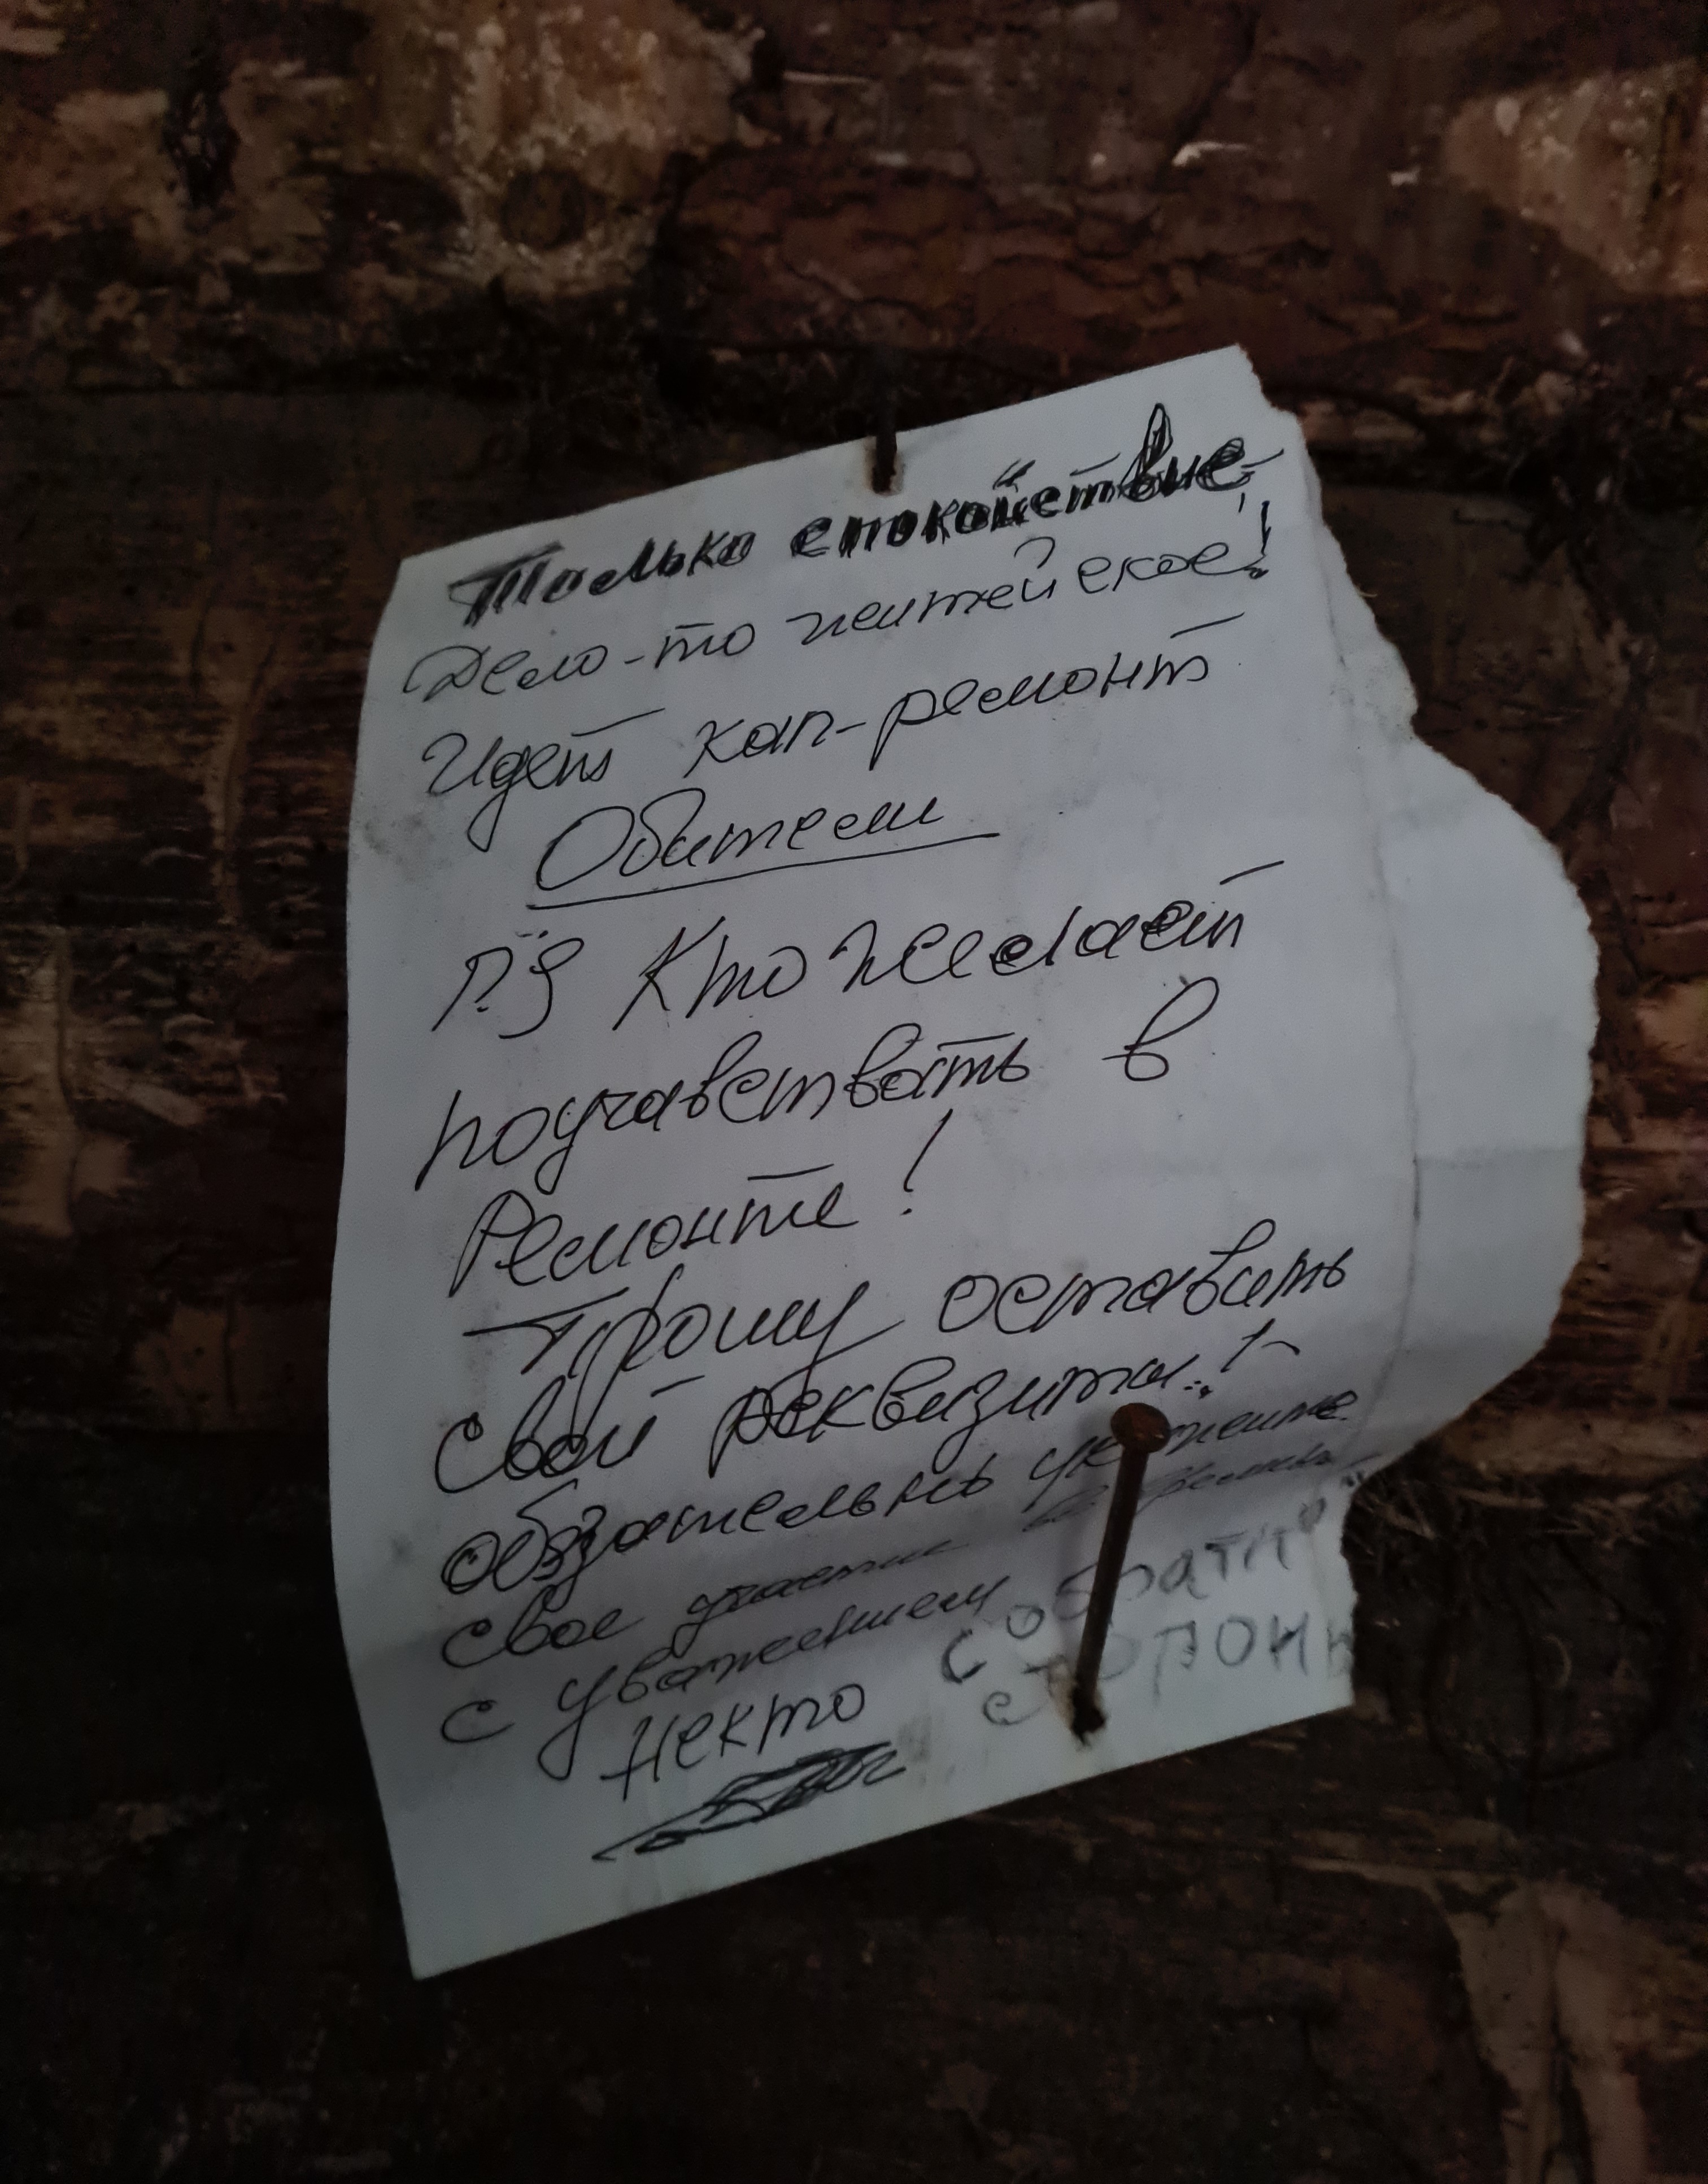 Только спокойствие
Дело-то житейское!
Идет кап-ремонт
Обители
P.S Кто желает
поучавствовать в
Ремонте!
Прошу оставить
свои реквизиты!
обязательнь укажите
свое участие
с уважением
Некто
с обратн
сторонн